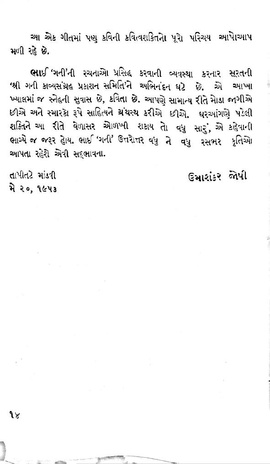 આ એક ગીતમાં પણ કવિની કવિત્વશક્તિનો પૂરો પરિચય આપોઆપ
મળી રહે છે.
ભાઈ 'ગની'ની રચનાઓ પ્રસિદ્ધ કરવાની વ્યવસ્થા કરનાર સુરતની
'શ્રી ગની કાવ્યસંગ્રહ પ્રકાશન સમિતિ'ને અભિનંદન ઘટે છે. એ આખા
ખ્યાલમાં જ સ્નેહની સુવાસ છે, કવિતા છે. આપણે સામાન્ય રીતે મોડા જાગીએ
છીએ અને સ્મારકો રૂપે સાહિત્યને ગ્રંથસ્થ કરીએ છીએ. ઘરઆંગણે પડેલી
શક્તિને આ રીતે વેળાસર ઓળખી શકાય તો વધુ સારું, એ કહેવાની
ભાગ્યે જ જરૂર હોય. ભાઈ 'ગની' ઉત્તરોત્તર વધુ ને વધુ રસભર કૃતિઓ
આપતા રહેશે એવી સદ્ભાવના.
તાપીતટે માંડવી
ઉમાશંકર જોષી
મે ૨૦, ૧૯૫૩
૧૪